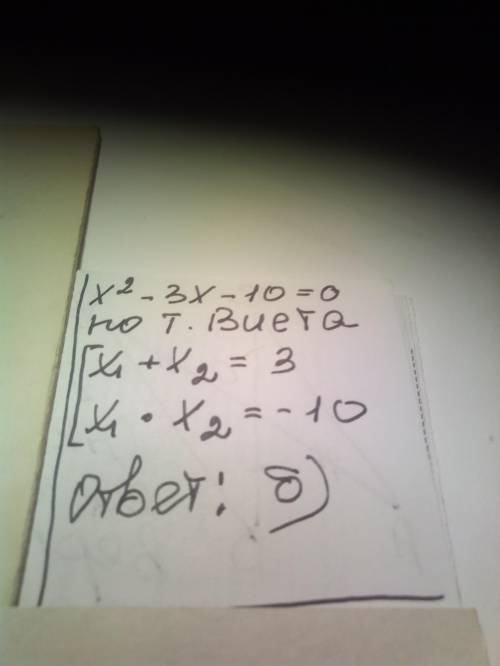 x² - 3x - 10 = 0
по т. Виета
x₁ + x₂ = 3
x₁ · x₂ = - 10
ответ: б)